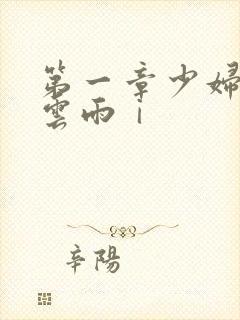 第一章少婦
雲雨 |
辛陽